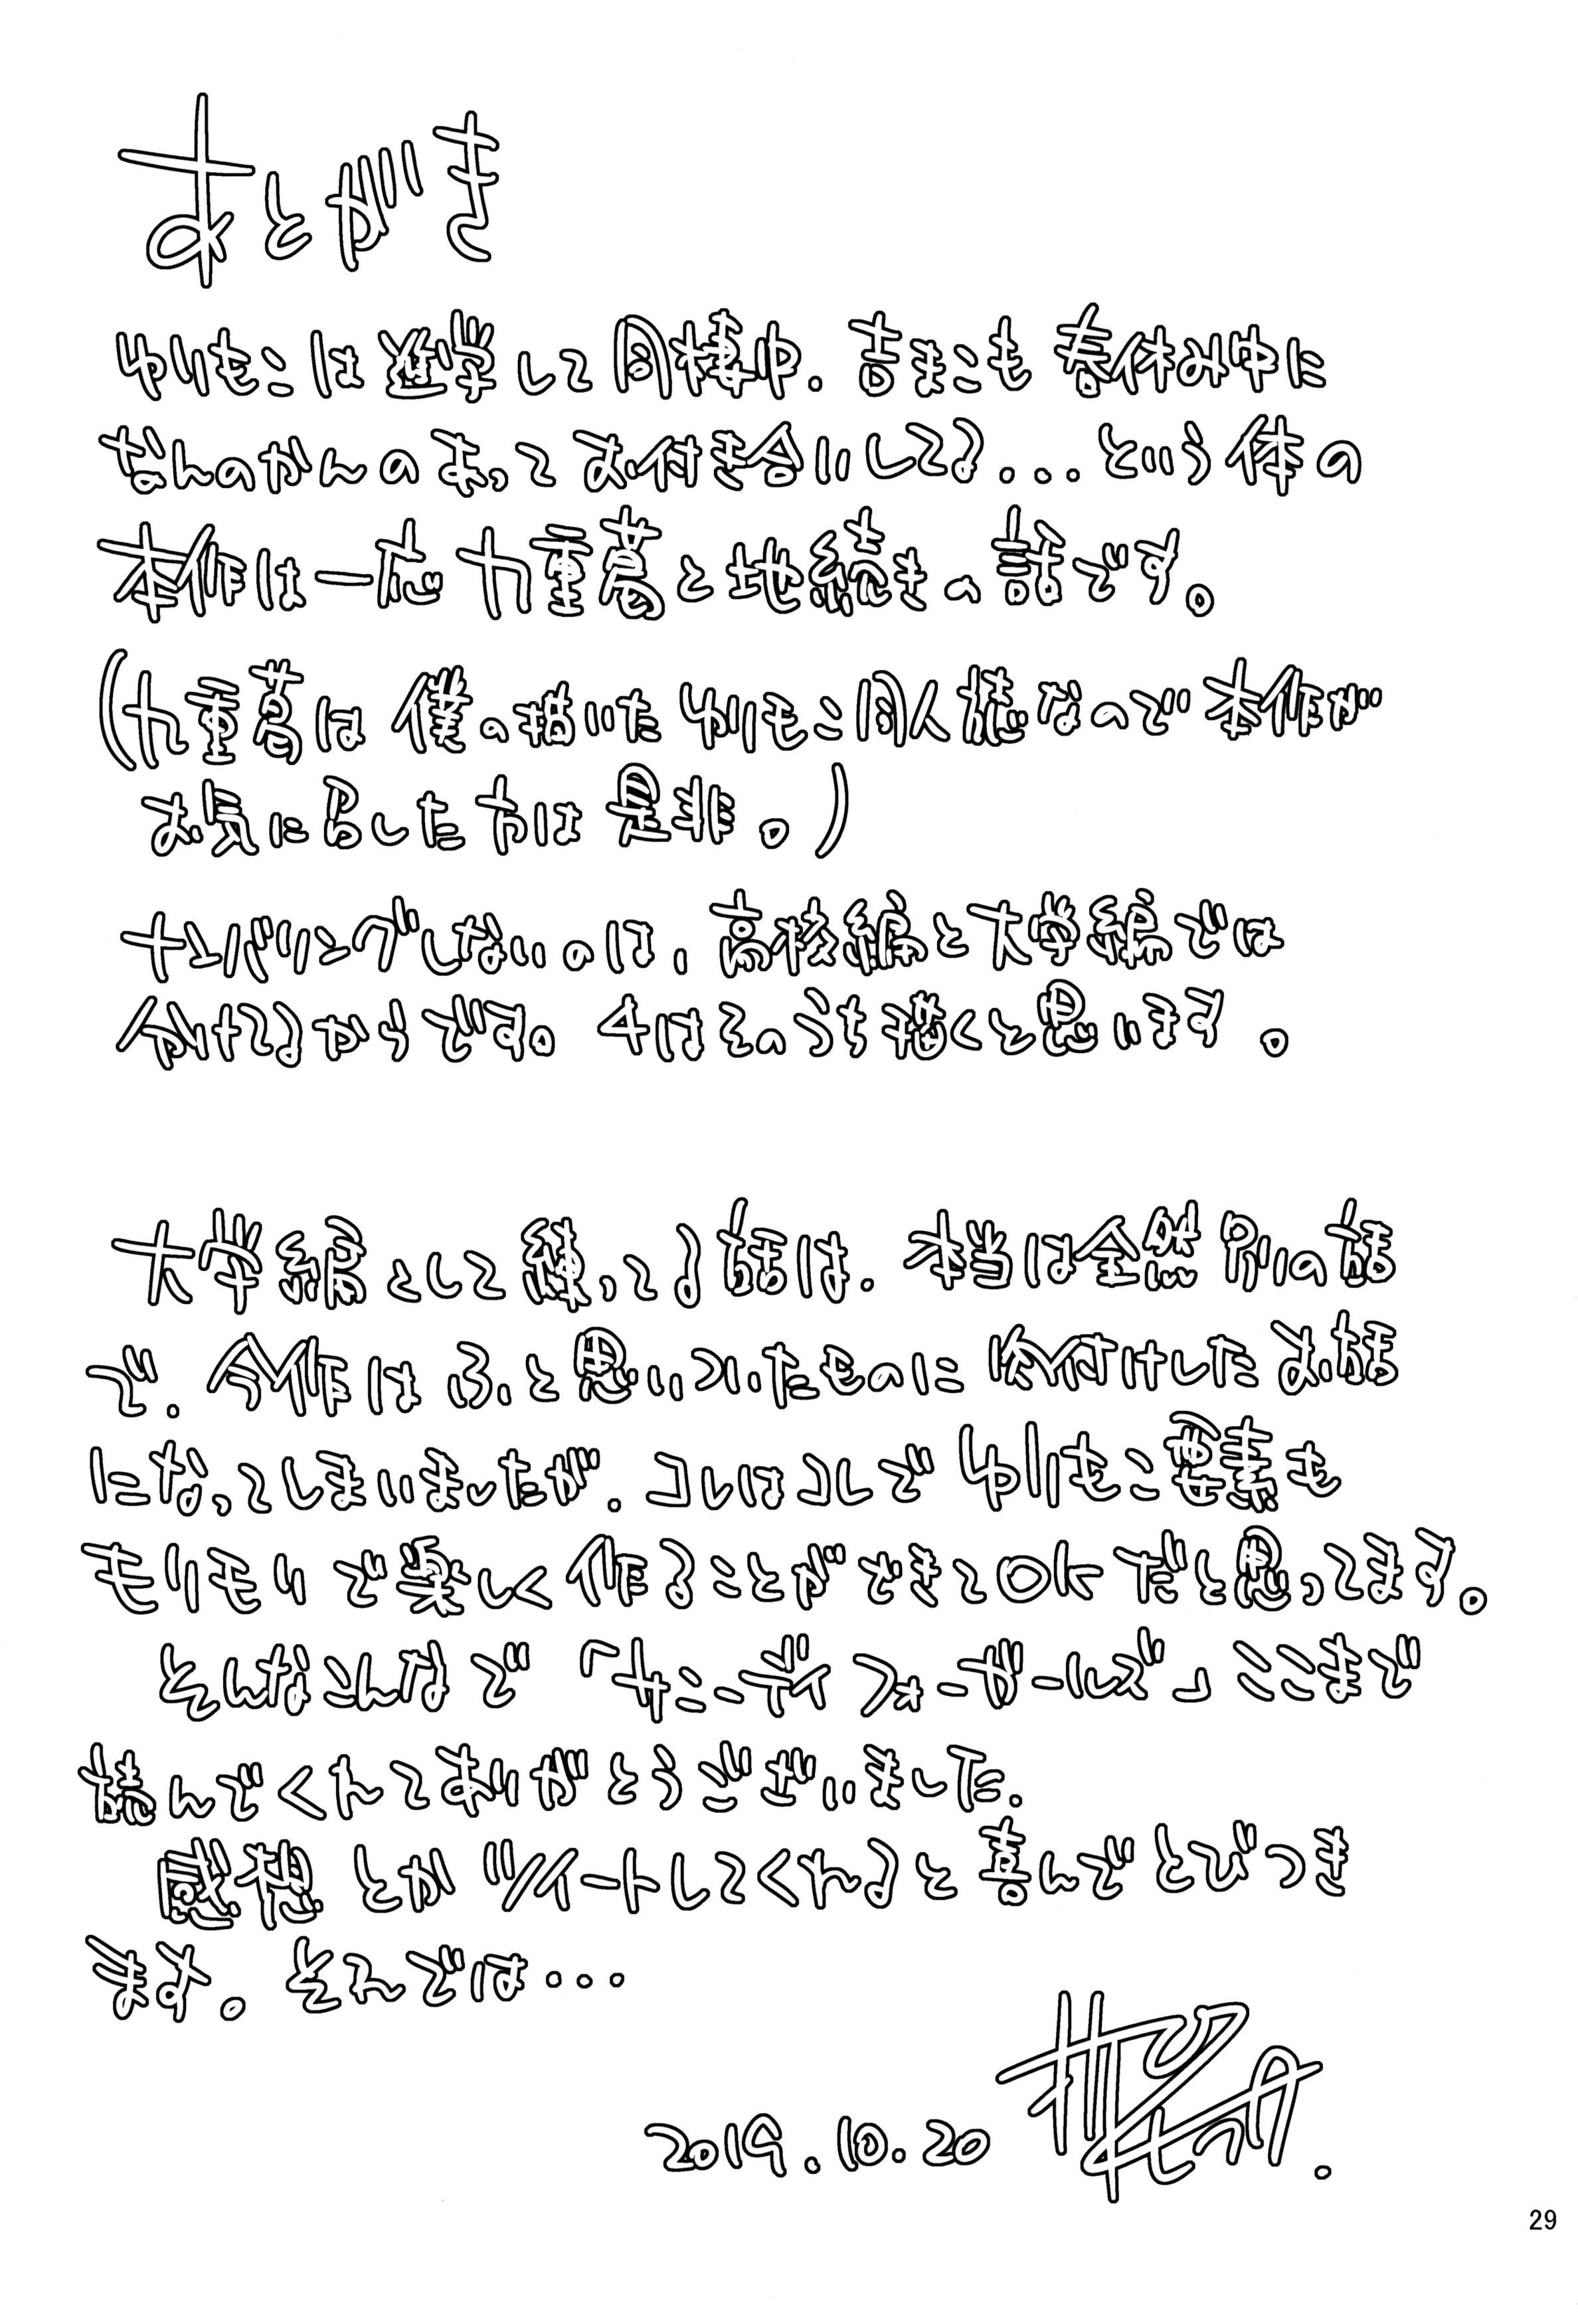 あとがき
ゆりもこは進学して同棲中. 吉まこも春休み中に
なんのかんのあってお付き合いしてる...という体の
本作は一応九重葛と地続きの話です。
(九重葛は僕の描いたゆりもこ同人誌なので本作が
お気に召した方は是非。)
ナンバリングしないのは,高校編と大学編では
分けてるからです。4はそのうち描くと思います。
大学編として練ってる話は. 本当は全然別の話
で. 今作はふと思いついたものに味付けしたお話
になってしまいましたが. コレはコレでゆりもこ要素も
モリモリで楽しく作ることができてOKだと思ってます。
そんなこんなで「サニーディフォーガールズ」ここまで
読んでくれてありがとうございました.
感想とかツイートしてくれると喜んでとびつき
ます。それでは...
2019.10.20
29